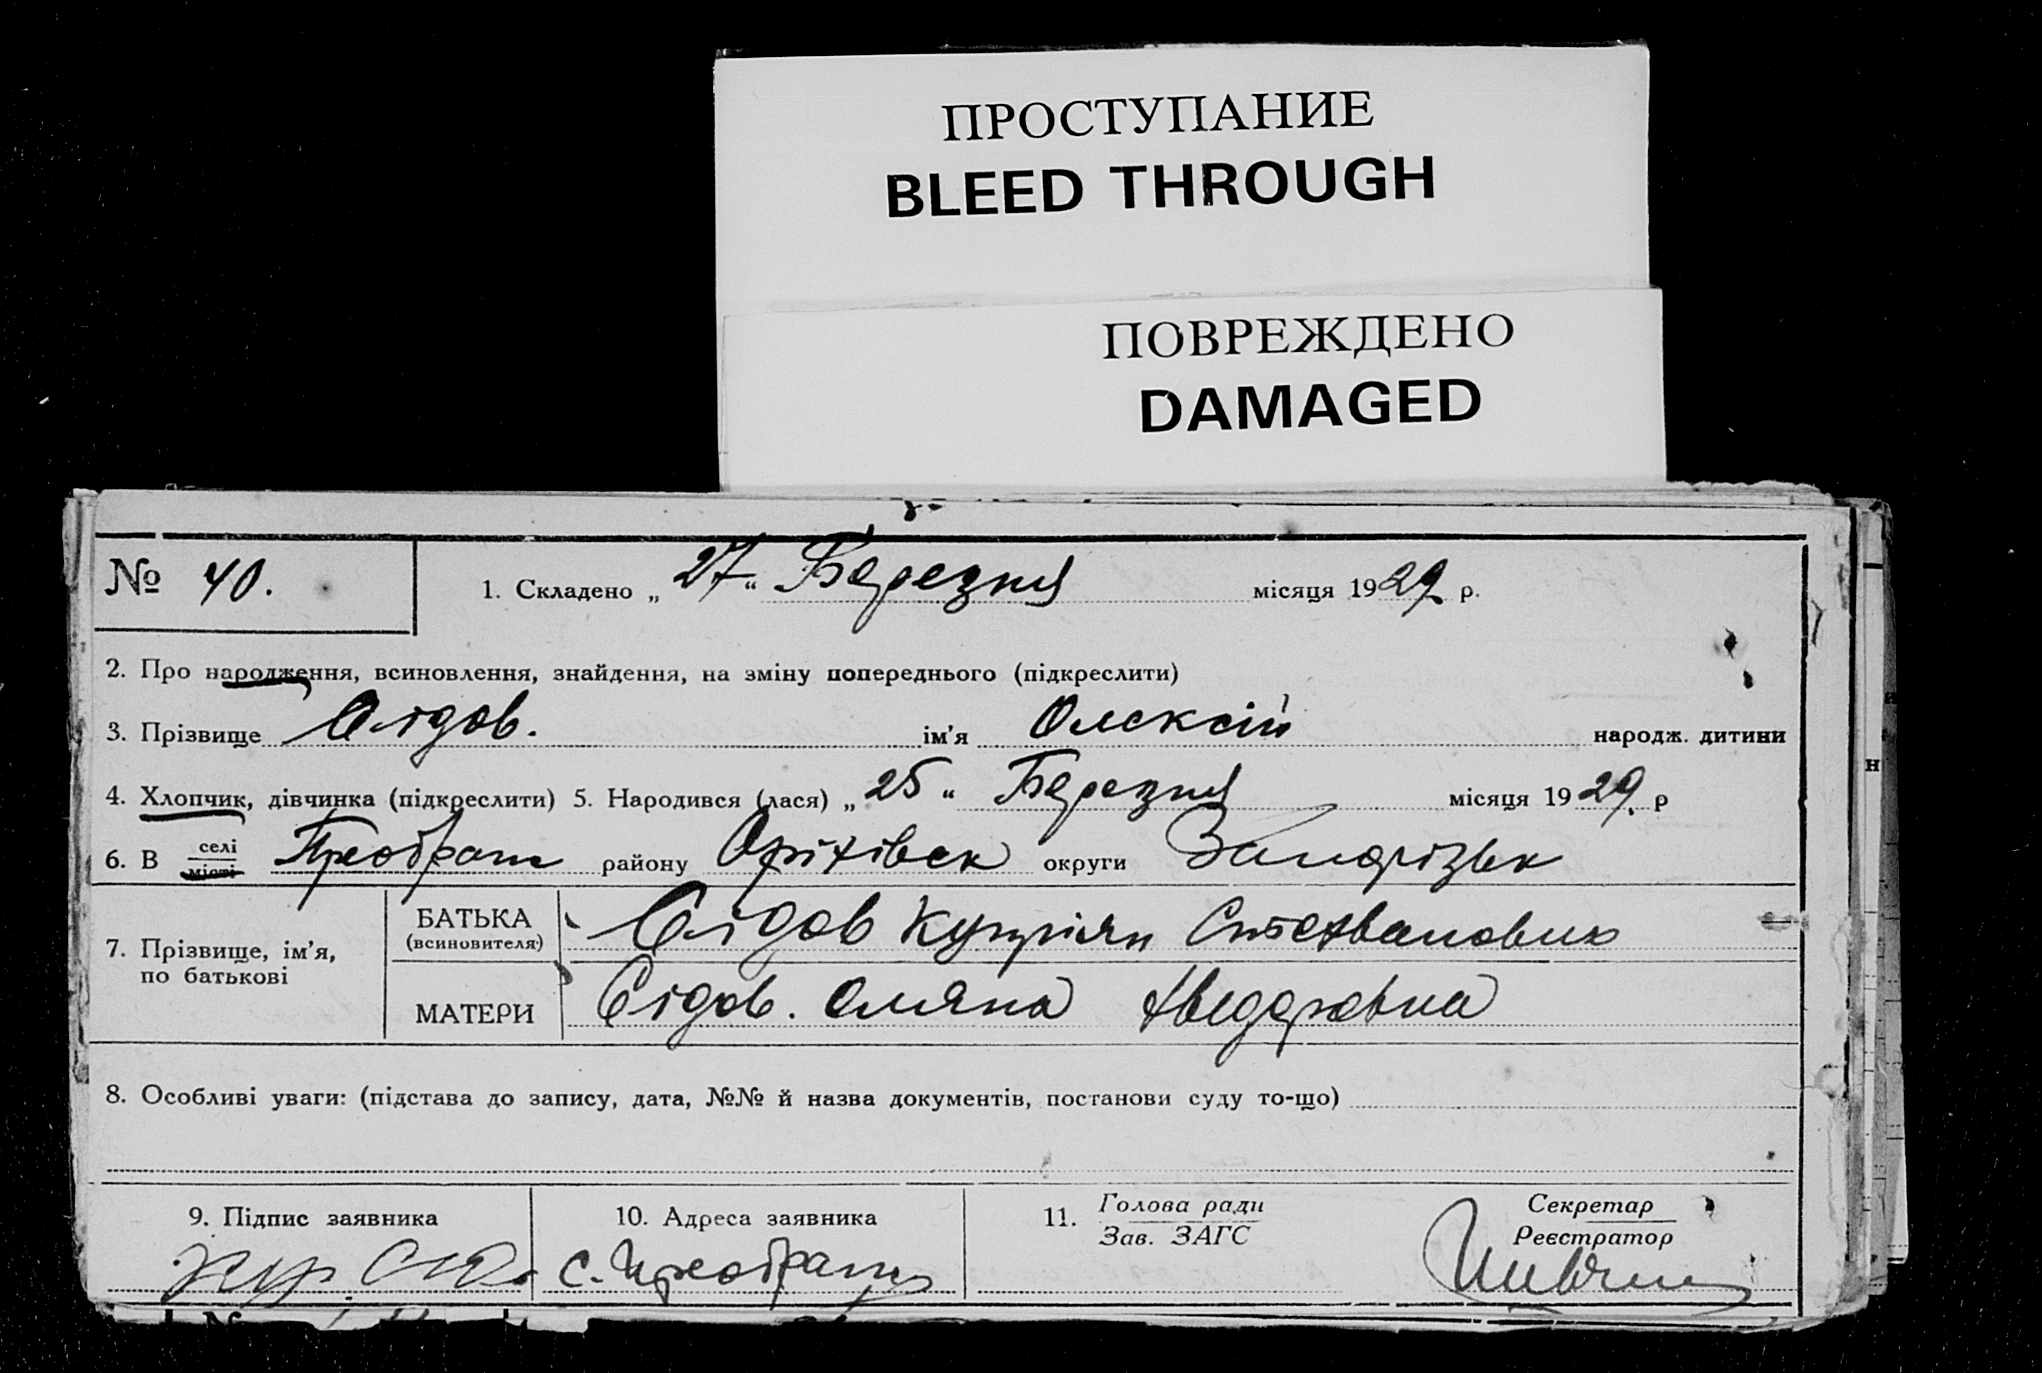 ПРОСТУПАНИЕ
BLEED THROUGH
ПОВРЕЖДЕНО
DAMAGED
№ 40.
1. Складено „27“ Березня місяця 1929 р.
2. Про народження, всиновлення, знайдення, на зміну попереднього (підкреслити)
3. Прізвище Сідов. ім’я Олексій народж. дитини
4. Хлопчик, дівчинка (підкреслити) 5. Народився (лася) „25“ Березня місяця 1929. р
6. В селі місті Преображ району Оріхівськ округи Запорізьк
7. Прізвище, ім’я, по батькові
БАТЬКА (всиновителя) Сідов Купріян Стехванович
МАТЕРИ Сідов. Оляна Хведоровна
8. Особливі уваги: (підстава до запису, дата, №№ й назва документів, постанови суду то-що)
9. Підпис заявника
10. Адреса заявника
с. Преображ
11. Голова ради
Зав. ЗАГС
Секретар
Реєстратор